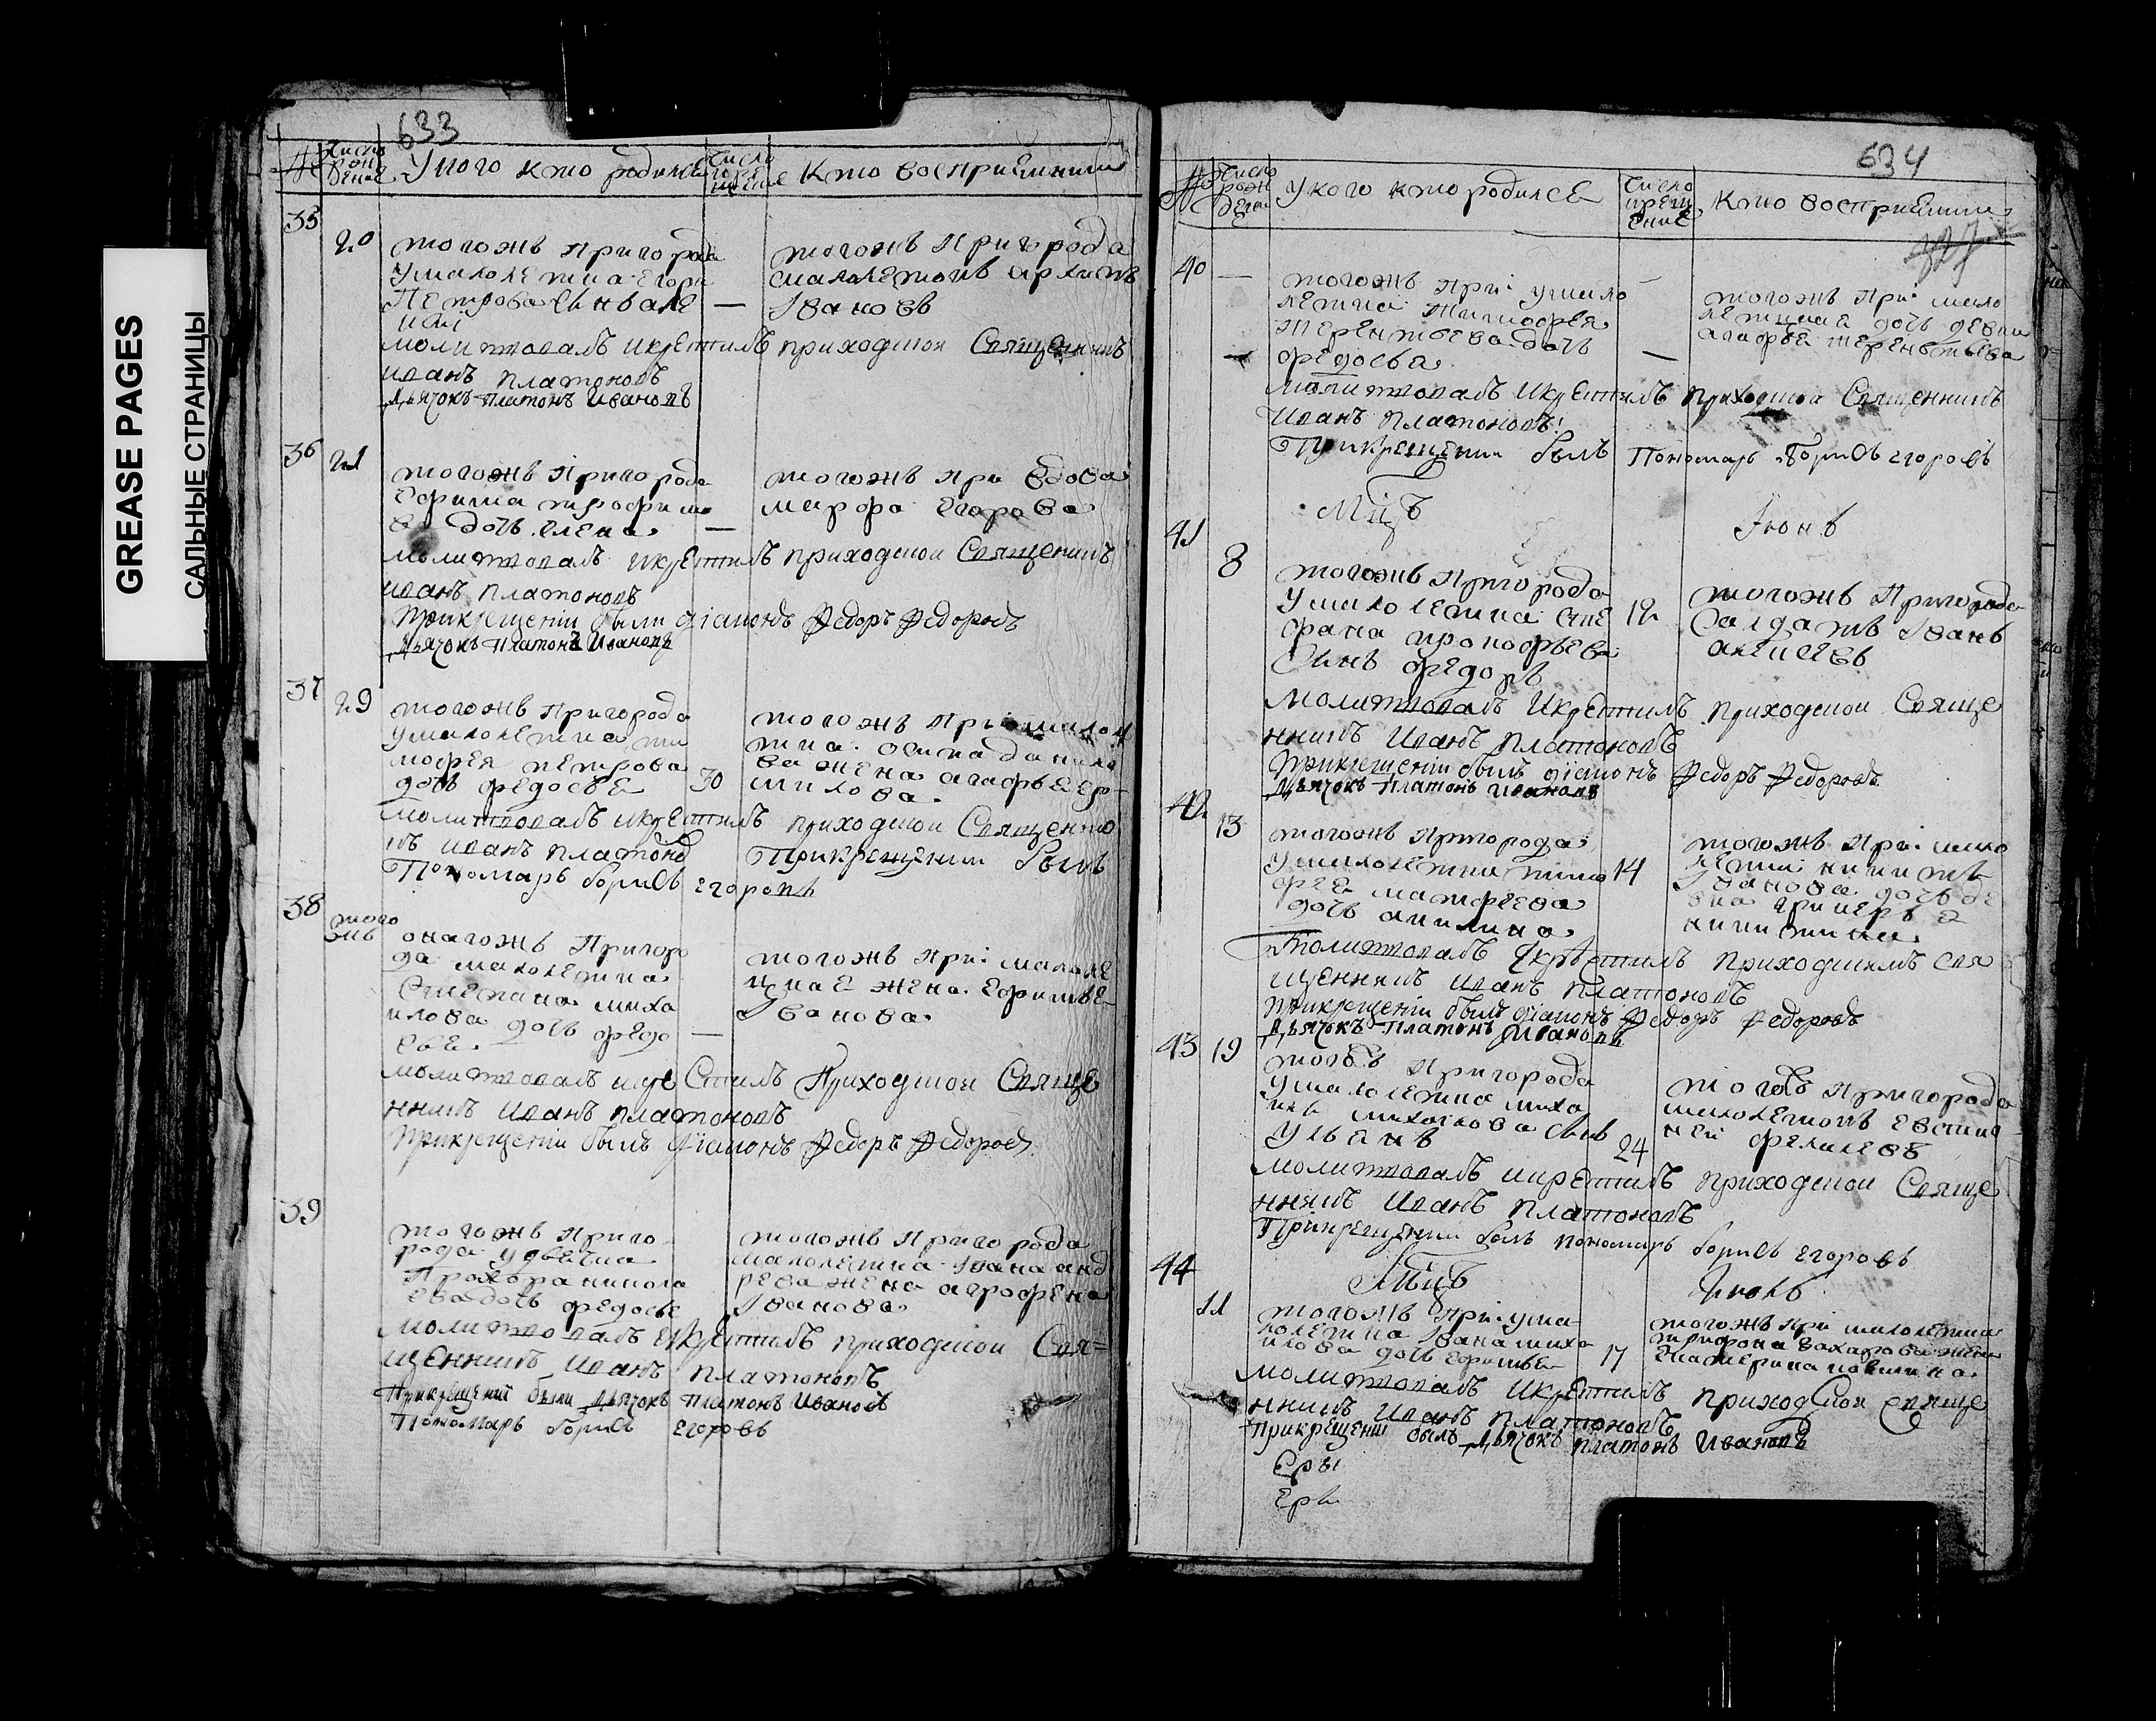 GREASE PAGES
САЛЬНЫЕ СТРАНИЦЫ
633
№
Число рож дение
У ково кто родился
Число крещение
Кто восприемники
35
20
тогожъ Пригорода
У малолетка Егора
Петрова Синъ Але
ѯей
—
тогожъ Пригорода
малолетокъ Архипъ
Iвановъ
молитвовалъ икрестилъ приходской Священникъ
Иванъ Платоновъ
Дьячокъ Платонъ Ивановъ
36
21
тогожъ Пригорода
Ефима трофимо
ва дочь елена
—
тогожъ При вдова
марфа Егорова
молитвовалъ икрестилъ приходской Священикъ
иванъ Платоновъ
Прикрещении были дiаконъ Федоръ Федоровъ
Дьячокъ Платонъ Ивановъ
37
29
тогожъ Пригорода
У малолетка ти
мофея петрова
дочь федосье
30
тогожъ При малол
тка осипа данило
ва жена агафье ер
милова
молитвовалъ икрестилъ приходской Священни
къ иванъ платоновъ
Прикрещении былъ
Пономарь борисъ егоровъ
38
того жъ
онагожъ Пригоро
да малолетка
Степана миха
илова дочь федо
сье
—
тогожъ При: малоле
цкае жена Ефимье
Iванова
молитвовалъ икрестилъ Приходской Свяще
нникъ иванъ платоновъ
Прикрещении былъ дiаконъ Федоръ Федоровъ
39
тогожъ Приго
рода у
Прохора никола
ева дочь федосье
тогожъ Пригорода
малолетка Iвана анд
реева жена аграфена
Iванова
молитвовалъ икрестилъ приходской Свя=
щенникъ Иванъ Платоновъ
Прикрещении были Дьячокъ Платонъ Ивановъ
Пономарь борисъ егоровъ
634
№
Число рож дение
У кого кто родилсе
Число крещ ение
Кто восприемники
327
40
—
тогожъ При: У мало
летка Тимофея
Терентьева дочь
федосья
—
тогожъ При: мало
летцкае дочь девка
агафье теренътьева
молитвовалъ икрестилъ приходской Священникъ
Иванъ Платоновъ
Прикрещении былъ Пономарь Борисъ егоровъ
Мцъ
Iюнь
41
8
тогожъ Пригорода
У малолетка сте
фана прокофьева
Синъ федоръ
12
тогожъ Пригорода
Салдатъ Iванъ
молитвовалъ икрестилъ приходской Свяще
нникъ Иванъ Платоновъ
Прикрещении былъ дiаконъ Федоръ Федоровъ
Дьячокъ Платонъ Ивановъ
42
13
тогожъ Пригорода
У малолетки тимо
фея матфеева
дочь акилина
14
тогожъ При: мало
летки никиты
Iванова дочь де
вка
никитина
молитвовалъ икрестилъ приходскимъ Свя
щенникъ Иванъ Платоновъ
Прикрещении былъ дiаконъ Федоръ Федоровъ
Дьячокъ Платонъ Ивановъ
43
19
Пригорода
У малолетка миха
илы михайлова синъ
Ульянъ
24
Пригорода
малолетокъ Евстиг
ней
молитвовалъ икрестилъ приходской Свяще
нникъ Иванъ Платоновъ
Прикрещении былъ пономарь борисъ егоровъ
44
Мцъ
Июль
11
тогожъ При: у ма
лолетка Iвана миха
илова дочь Ефимья
17
тогожъ При малолетка
трифона захарова жена
Екатерина
молитвовалъ икрестилъ приходской Свяще
нникъ Иванъ Платоновъ
Прикрещении былъ Дьячокъ Платонъ Ивановъ
Еры
Еръ